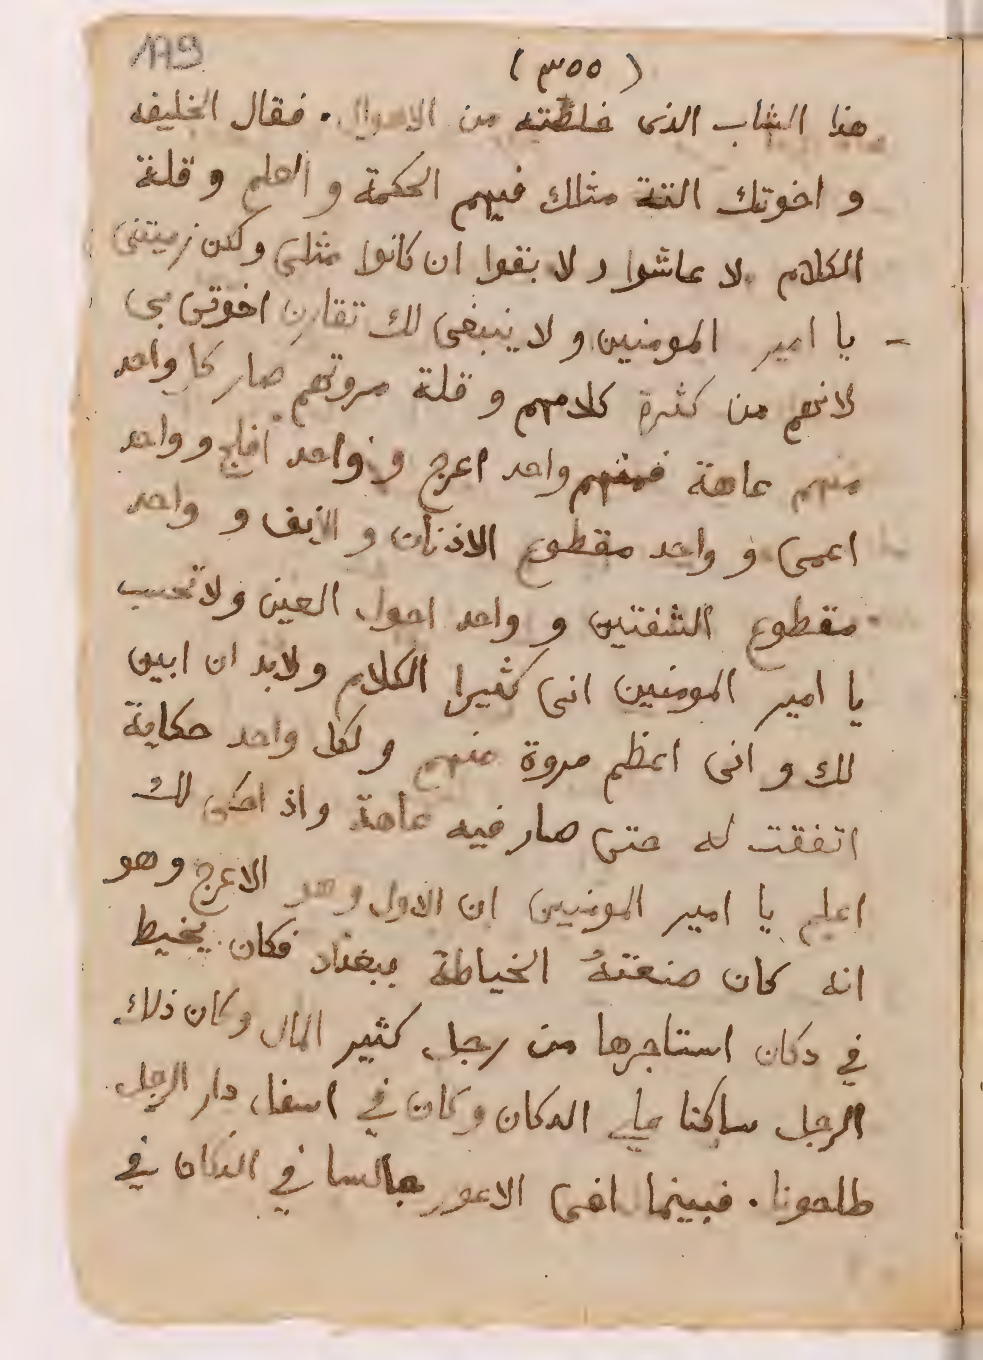 179
(٣٥٥)
هذا الشاب الذى خلصته من الاهوال. فقال الخليفه
و اخوتك الستة مثلك فيهم الحكمة و العلم و قلة
الكلام لا عاشوا و لا بقوا ان كانوا مثلى ولكن زميتنى
يا امير المومنين و لا ينبغى لك تقارن اخوتى بى
لانهم من كثرة كلامهم و قلة مروتهم صار كل واحد
منهم عاهة فمنهم واحد اعرج و واحد افلج و واحد
اعمى و واحد مقطوع الاذنان و الانف و واحد
مقطوع الشفتين و واحد احول العين ولا تحسب
يا امير المومنين انى كثيرا الكلام ولابد ان ابين
لك و انى اعظم مروة منهم و لكل واحد حكاية
اتفقت له حتى صار فيه عاهة واذ احكى لك
اعلم يا امير المومنين ان الاول وهو الاعرج وهو
انه كان صنعته الخياطة ببغداد فكان يخيط
في دكان استاجرها من رجل كثير المال وكان ذلك
الرجل ساكنا على الدكان وكان في اسفل دار الرجل
طاحونا. فبينما اخى الاعور جالسا في الدكان في